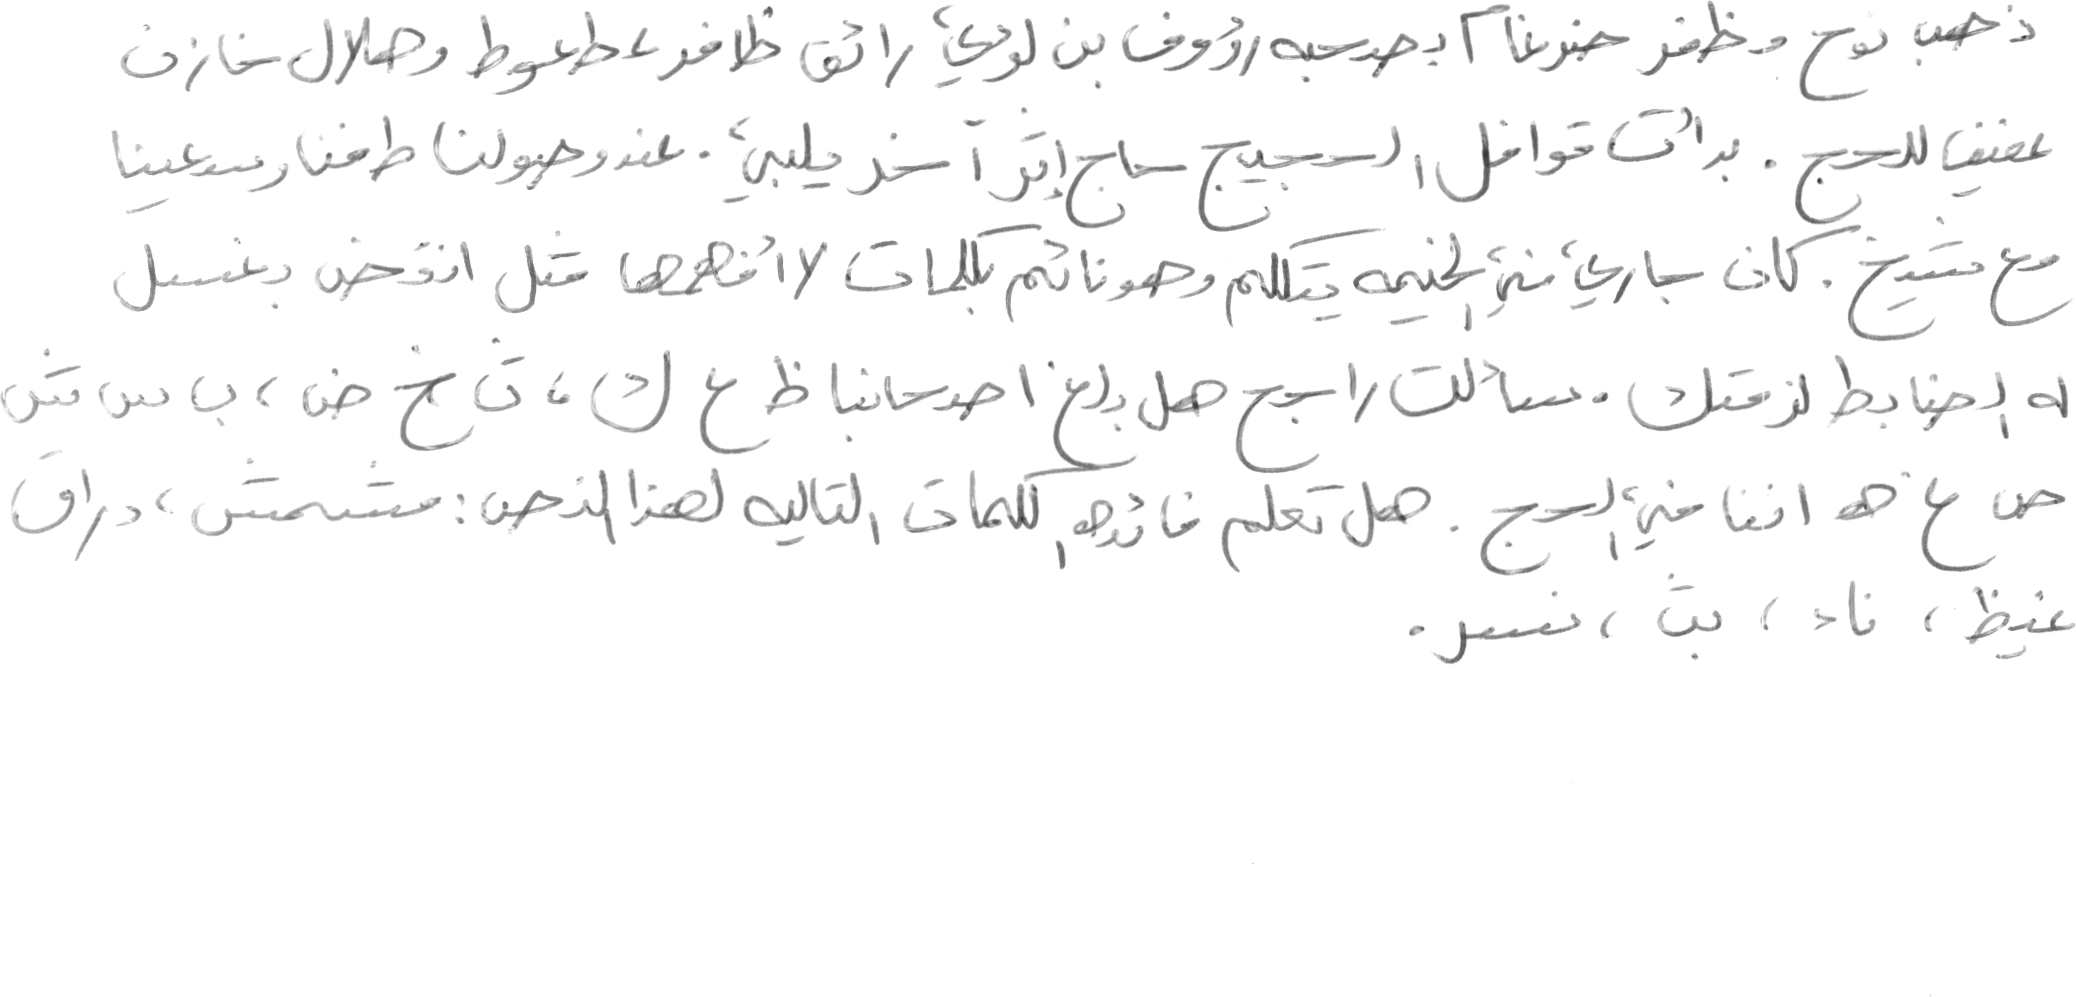 ذهب نوح مظفر ضرغام بصحبه رؤوف بن لؤيء رائق ظافر عطعوط وهلال خازن
عفيفا للحج . بدات قوافل الحجيج حاج إثر آخر يلبيء . عند وصولنا طفنا وسعينا
مع شيخ . كان جاريء فيء الخيمه يتكلم وهو نائم بكلمات لا أفهمها مثل انقض بغسل
له الضابط لزمتك . سالت راجح هل بلغ اصحابنا ظ ع ك ، ث خ ض ، ب س ش
ص غ ه اننا فيء الحج . هل تعلم فائده الكلمات التاليه لهذا النص : مشمش ، دراق
غيظ ، ناء ، بث ، نسر .